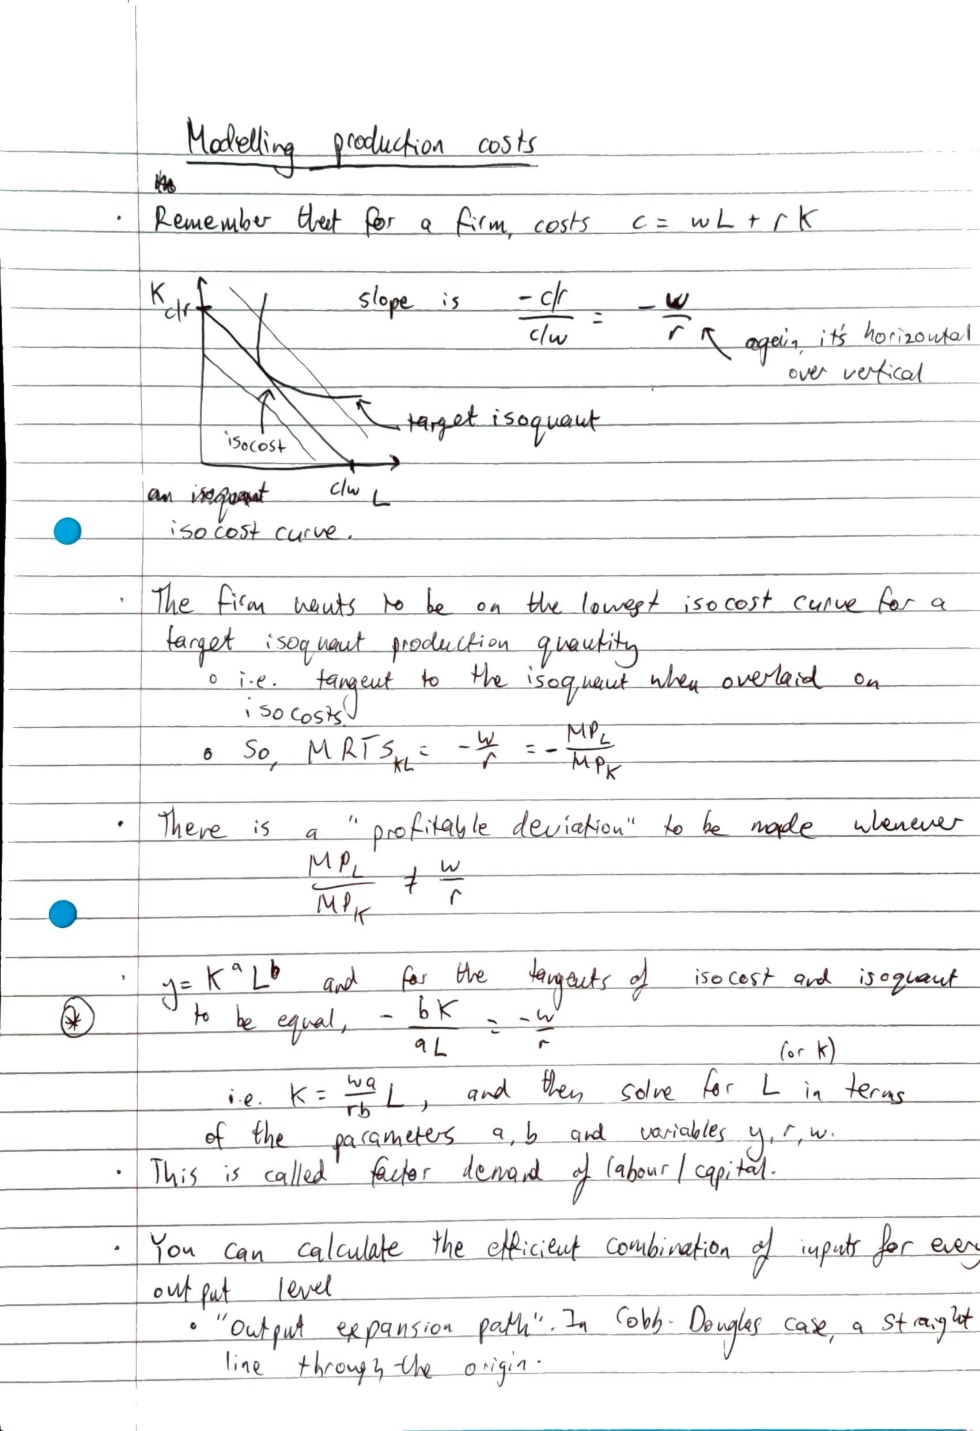 Modelling production costs
· Remember that for a firm, costs c = wL + rK
K
c/r
slope is -c/r / c/w = - w/r
again, it's horizontal
over vertical
target isoquant
isocost
c/w L
an isoquant
isocost curve.
· The firm wants to be on the lowest isocost curve for a
target isoquant production quantity
o i.e. tangent to the isoquant when overlaid on
isocosts
o So, MRTS_KL = - w/r = - MP_L/MP_K
· There is a "profitable deviation" to be made whenever
MP_L/MP_K ≠ w/r
· y = K^a L^b and for the tangents of isocost and isoquant
* to be equal, - bK/aL = -w/r
(or K)
i.e. K = wa/rb L, and then solve for L in terms
of the parameters a, b and variables y, r, w.
· This is called factor demand of labour / capital.
· You can calculate the efficient combination of inputs for every
output level
• "Output expansion path". In Cobb-Douglas case, a straight
line through the origin.